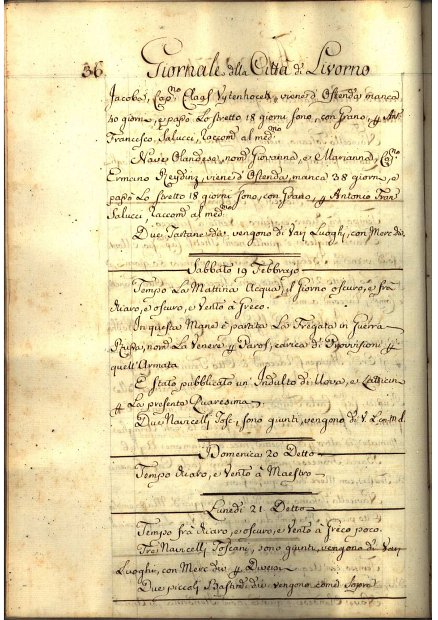 36. Giornale della Città di Livorno
Jacoba, Cap.no Claas Vytenhoeck, viene d'Ostenda manca
40 giorni, e passò Lo stretto 18 giorni sono, con Grano, p Ant.
Francesco Salucci, raccom.d al med.mo
Nave Olandese, nom.a Giovanna, e Marianna, Cap.no
Ermcino Reyding, viene d'Ostenda, manca 38 giorni, e
passò Lo Stretto 18 giorni sono, con Grano, p Antonio Fran.
Salucci, raccom.d al med.mo
Due Tartane d.e vengono di Varj Luoghi, con Merc. d.e
Sabbato 19 Febbrajo
Tempo La Mattina Acqua, il Giorno oscuro, e frà
chiaro, e oscuro, e Vento à Greco.
In questa Mane è partita La Fregata in Guerra
Russa, nom.a La Venere p Paros, carica di Provvisioni p
quell'Armata
È stato pubblicato un' Indulto di Uova, e Latticini
p La presente Quaresima
Due Navicelli Tosc.i sono giunti, vengono di V. L. con M. d.
Domenica 20 Detto
Tempo chiaro, e Vento à Maestro
Lunedì 21 Detto
Tempo frà chiaro, e oscuro, e Vento à Greco poco.
Tre Navicelli Toscani, sono giunti, vengono di Varj
Luoghi, con Merc. d.e p Diversi
Due piccoli Bastim.ti d.i vengono come Sopra